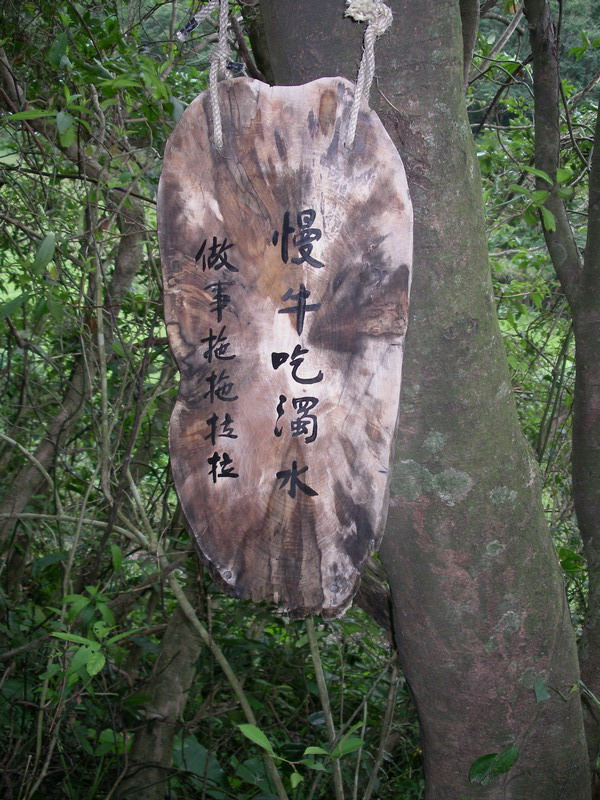 慢牛吃濁水
做事拖拖拉拉